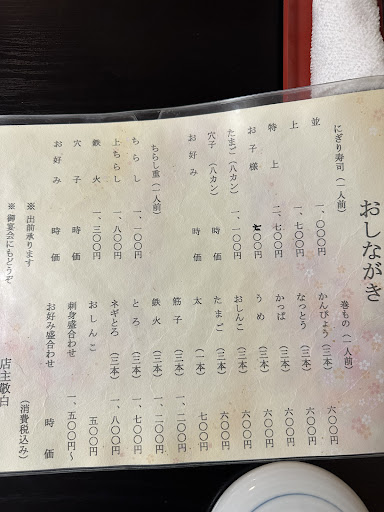 おしながき
にぎり寿司(一人前)
並 一、〇〇〇円
上 一、七〇〇円
特上 二、七〇〇円
お子様 七〇〇円
たまご(八カン) 一、一〇〇円
穴子(八カン) 時価
お好み 時価
ちらし重(一人前)
ちらし 一、一〇〇円
上ちらし 一、八〇〇円
鉄火 一、三〇〇円
穴子 時価
お好み 時価
※ 出前承ります
※ 御宴会にもどうぞ
巻もの(一人前)
かんぴょう(三本) 六〇〇円
なっとう(三本) 六〇〇円
かっぱ(三本) 六〇〇円
うめ(三本) 六〇〇円
おしんこ(三本) 六〇〇円
たまご(三本) 六〇〇円
太(一本) 七〇〇円
筋子(三本) 一、二〇〇円
鉄火(三本) 一、二〇〇円
とろ(三本) 一、七〇〇円
ネギとろ(三本) 一、八〇〇円
おしんこ 五〇〇円
刺身盛合わせ 一、五〇〇円~
お好み盛合わせ 時価
(消費税込み)
店主敬白